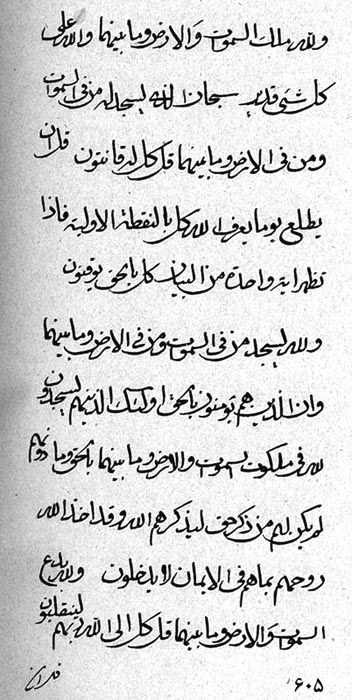 ولله ملك السموات والارض وما بينهما والله على
كل شئ قدير سبحان الذي يسجد له من في السموات
ومن في الارض وما بينهما قل كل له قانتون قل ان
يطلع يوما يعرف الله كل بالنقطة الاولية فاذا
تظهر اية واحدة من البيان كل بالحق يوقنون
ولله يسجد من في السموات ومن في الارض وما بينهما
وان الذينهم يؤمنون بالحق اولئك الذينهم ليسجدون
لله في ملكوت السموات والارض وما بينهما بالحق وما دونهم
لم يكن لهم من ذكر حق ليذكرهم الله وقد اخذ الله
روحهم بماهم في الايمان لا يدخلون ولله بدع
السموات والارض وما بينهما قل كل الى الله ربهم لينقلبون
٦٠٥